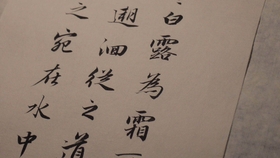 白露為霜
遡洄從之道
之宛在水中